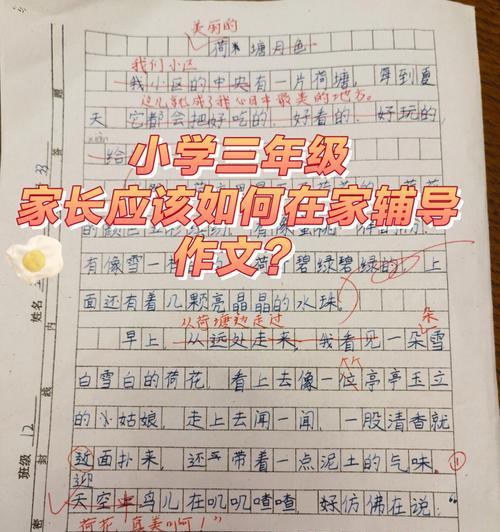 美丽的
荷塘月色
我们小区
我小区的中央有一片荷塘,每到夏
这儿就成了我心目中最美的地方。
天 它都会把好吃的、好看的、好玩的
给
小学三年级
家长应该如何在家辅导
作文?
有像雪一样 荷 碧绿碧绿的 上
面还有着几颗亮晶晶的水珠。
从荷塘边走过
朵
早上,从远处走来,我看见一朵雪
白雪白的荷花,看上去像一位亭亭玉立
的小姑娘,走上去闻一闻,一股清香就
近面扑来,还带着一点泥土的气味。
迎
天空中鸟儿在叽叽喳喳,好仿佛在说:"
荷花 真美啊!"
姓名
班级 12
密
封
线
内
答
题